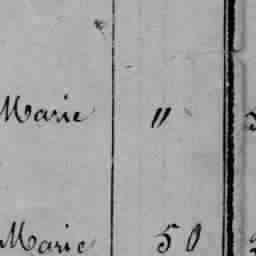 Marie "
Marie 50